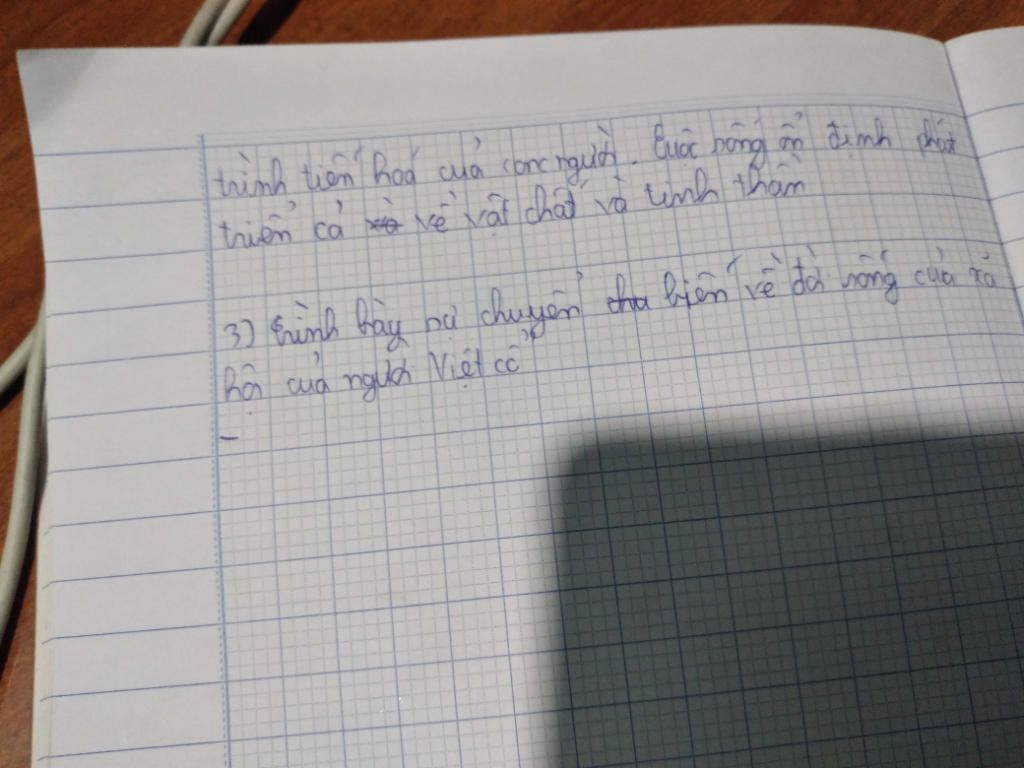 trình tiến hoá của con người. Cuộc sống ổn định phát
triển cả về vật chất và tinh thần
3) trình bày sự chuyển biến về đời sống của xã
hội của người Việt cổ
-